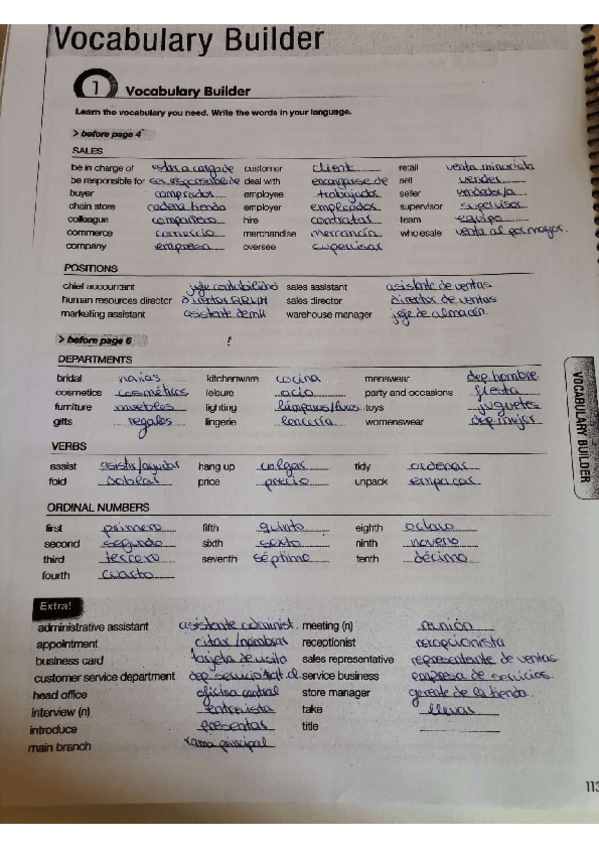 Vocabulary Builder
1 Vocabulary Builder
Learn the vocabulary you need. Write the words in your language.
> before page 4
SALES
be in charge of estar a cargo de customer client retail venta minorista
be responsible for ser responsable de deal with encargarse de sell vender
buyer comprador employee trabajador seller vendedor/a
chain store cadena tienda employer empleador supervisor supervisor
colleague compañero hire contratar team equipo
commerce comercio merchandise mercancía wholesale venta al por mayor.
company empresa oversee supervisar
POSITIONS
chief accountant jefe contabilidad sales assistant asistente de ventas
human resources director director RRHH sales director director de ventas
marketing assistant asistente de mk warehouse manager jefe de almacén
> before page 6
DEPARTMENTS
bridal novias kitchenware cocina menswear dep. hombre
cosmetics cosméticos leisure ocio party and occasions fiesta
furniture muebles lighting lámparas/luces toys juguetes
gifts regalos lingerie lencería womenswear dep. mujer
VERBS
assist asistir/ayudar hang up colgar tidy ordenar
fold doblar price precio unpack empacar
ORDINAL NUMBERS
first primero fifth quinto eighth octavo
second segundo sixth sexto ninth noveno
third tercero seventh séptimo tenth décimo
fourth cuarto
Extra!
administrative assistant asistente administ. meeting (n) reunión
appointment citar/nombrar receptionist recepcionista
business card tarjeta de visita sales representative representante de ventas
customer service department dep. servicio service business empresa de servicios
head office oficina central store manager gerente de la tienda
interview (n) entrevista take llevar
introduce presentar title
main branch rama principal
VOCABULARY BUILDER
113